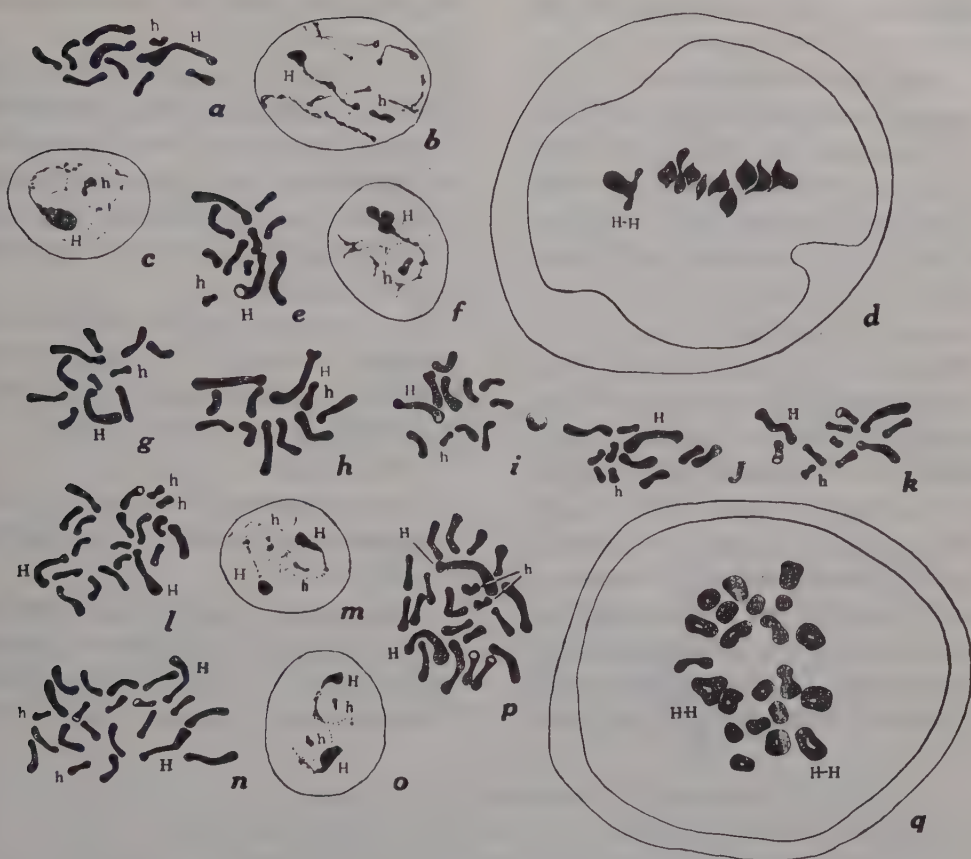 h
H
a
H
h
b
h
H
c
h
H
e
H
h
f
H-H
d
h
H
g
H
h
h
H
h
i
H
h
J
H
h
k
h
h
H
H
l
h
H
H
h
m
H
h
H
p
H
h
H
h
n
H
h
h
H
o
H-H
H-H
q